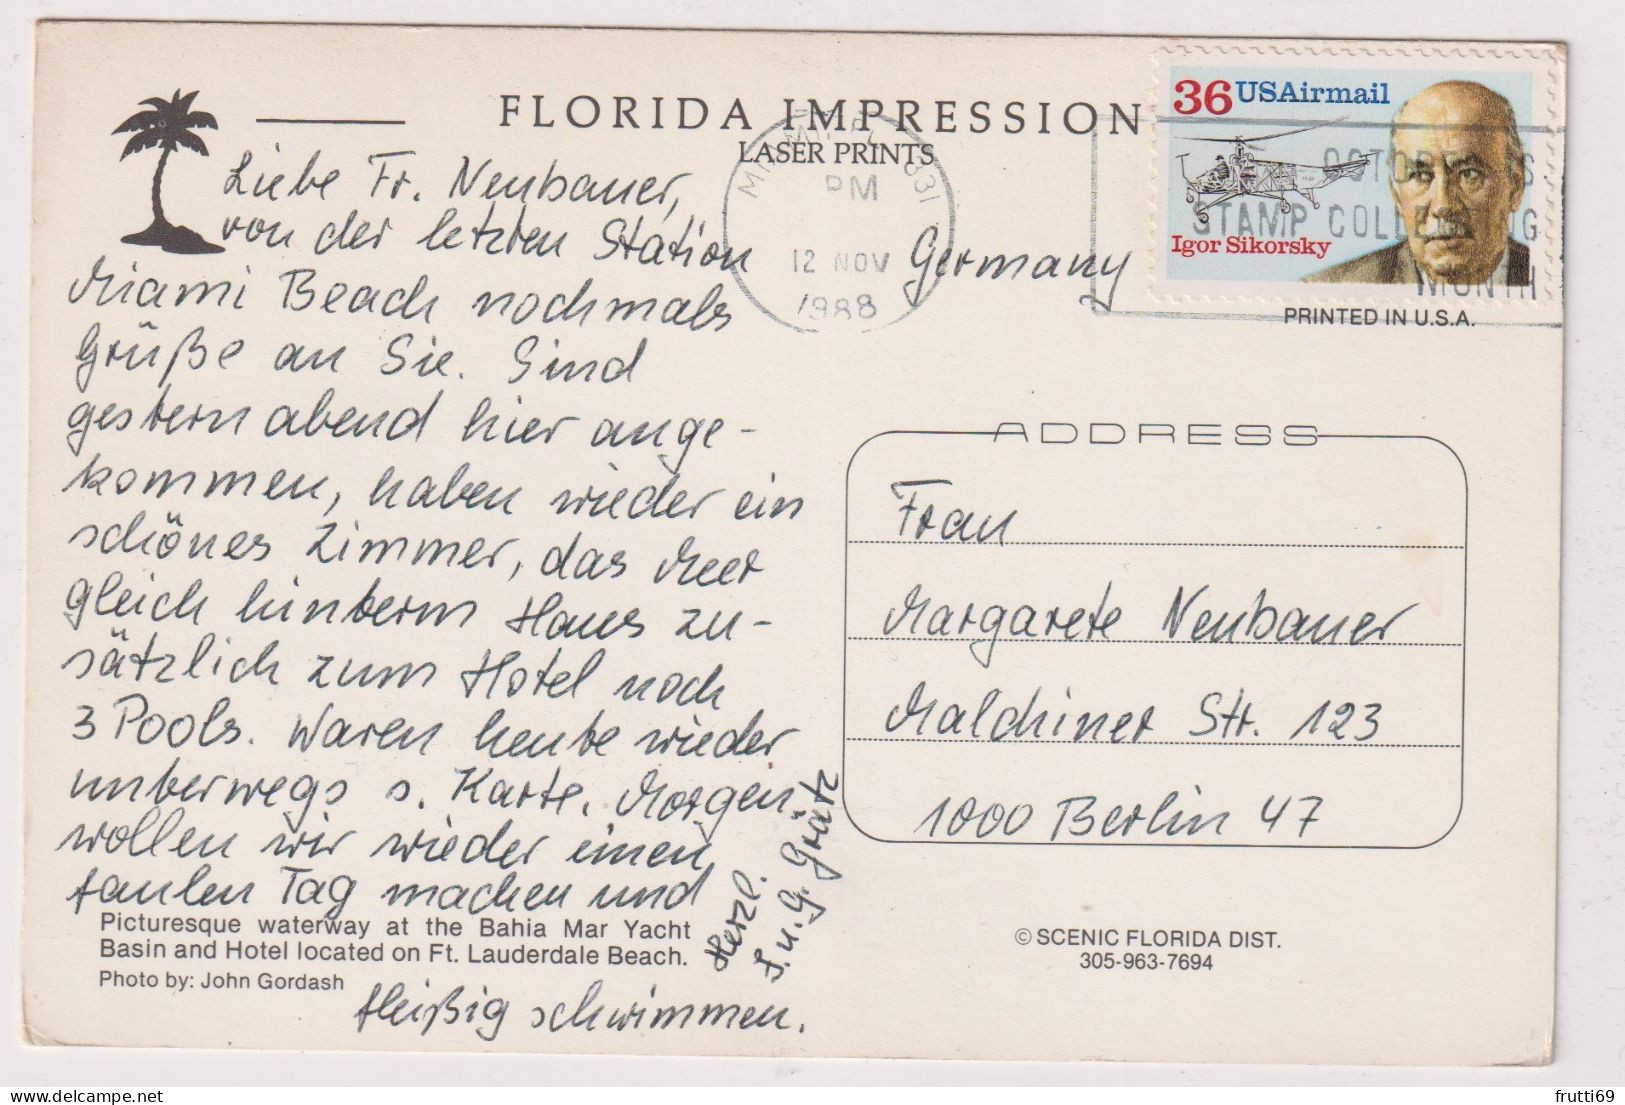 FLORIDA IMPRESSION
LASER PRINTS
36 USAirmail
Igor Sikorsky
OCTOBER IS
STAMP COLLECTING
MONTH
PM
12 NOV
1988
PRINTED IN U.S.A.
Liebe Fr. Neubauer,
von der letzten Station
Miami Beach nochmals
Grüße an Sie. Sind
gestern abend hier ange-
kommen, haben wieder ein
schönes Zimmer, das Meer
gleich hinterm Haus zu-
sätzlich zum Hotel noch
3 Pools. Waren heute wieder
unterwegs s. Karte. Morgen
wollen wir wieder einen
faulen Tag machen und
fleißig schwimmen.
Herzl.
u. G. Grätz
Picturesque waterway at the Bahia Mar Yacht
Basin and Hotel located on Ft. Lauderdale Beach.
Photo by: John Gordash
Germany
ADDRESS
Frau
Margarete Neubauer
Malchiner Str. 123
1000 Berlin 47
© SCENIC FLORIDA DIST.
305-963-7694
frutti69